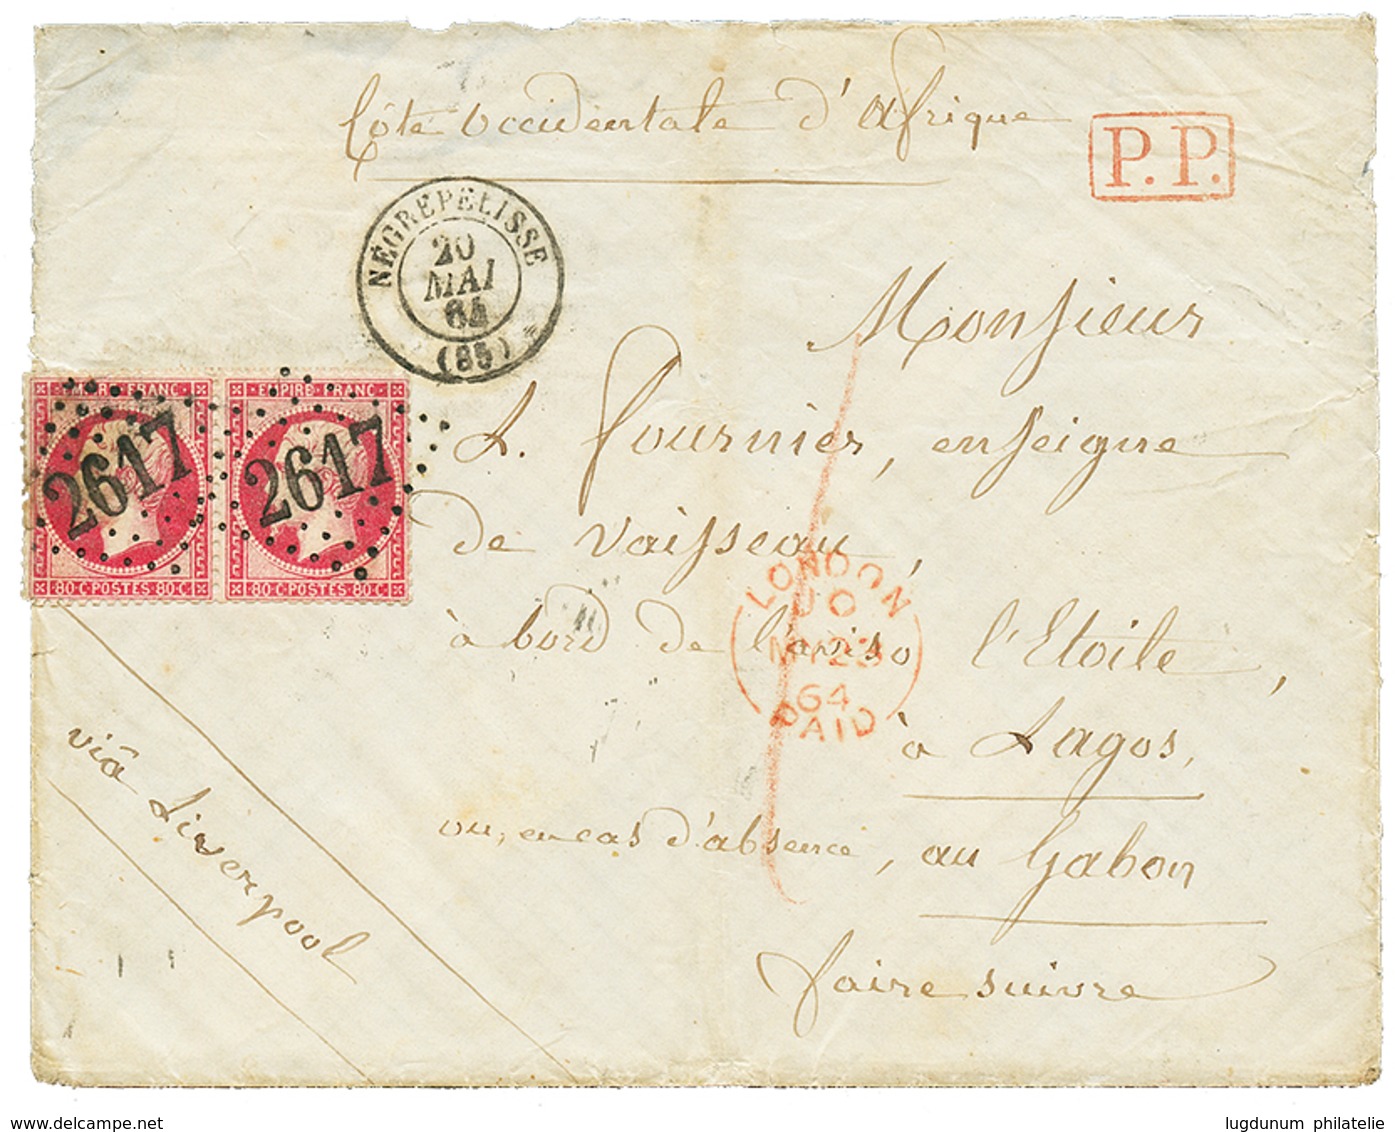 Côte Occidentale d'Afrique
P.P.
NÉGREPELISSE
20
MAI
64
Monsieur
EMPIRE FRANC
EMPIRE FRANC
2617
2617
80·C·POSTES·80·C
80·C·POSTES·80·C
A. Fournier, enseigne
de vaisseau,
à bord de l'aviso l'Etoile,
LONDON
MY 23
64
PAID
à Lagos,
ou, en cas d'absence, au Gabon
faire suivre
viâ Liverpool
lugdunum philatelie